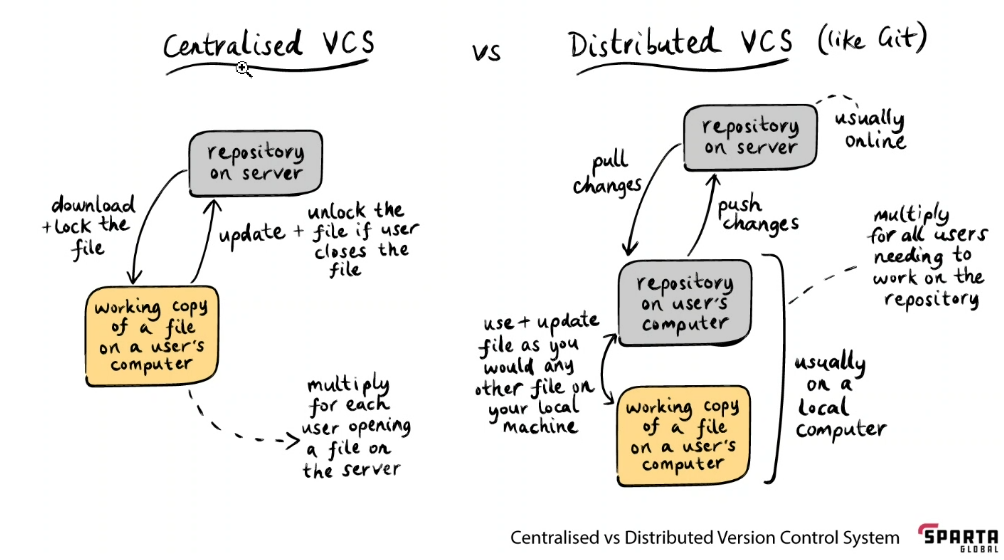 Centralised VCS
vs
Distributed VCS (like Git)
repository
on server
download
+ lock the
file
update + unlock the
file if user
closes the
file
working copy
of a file
on a user's
computer
multiply
for each
user opening
a file on
the server
repository
on server
usually
online
pull
changes
push
changes
multiply
for all users
needing to
work on the
repository
repository
on user's
computer
use + update
file as you
would any
other file on
your local
machine
working copy
of a file
on a user's
computer
usually
on a
local
computer
Centralised vs Distributed Version Control System
SPARTA
GLOBAL